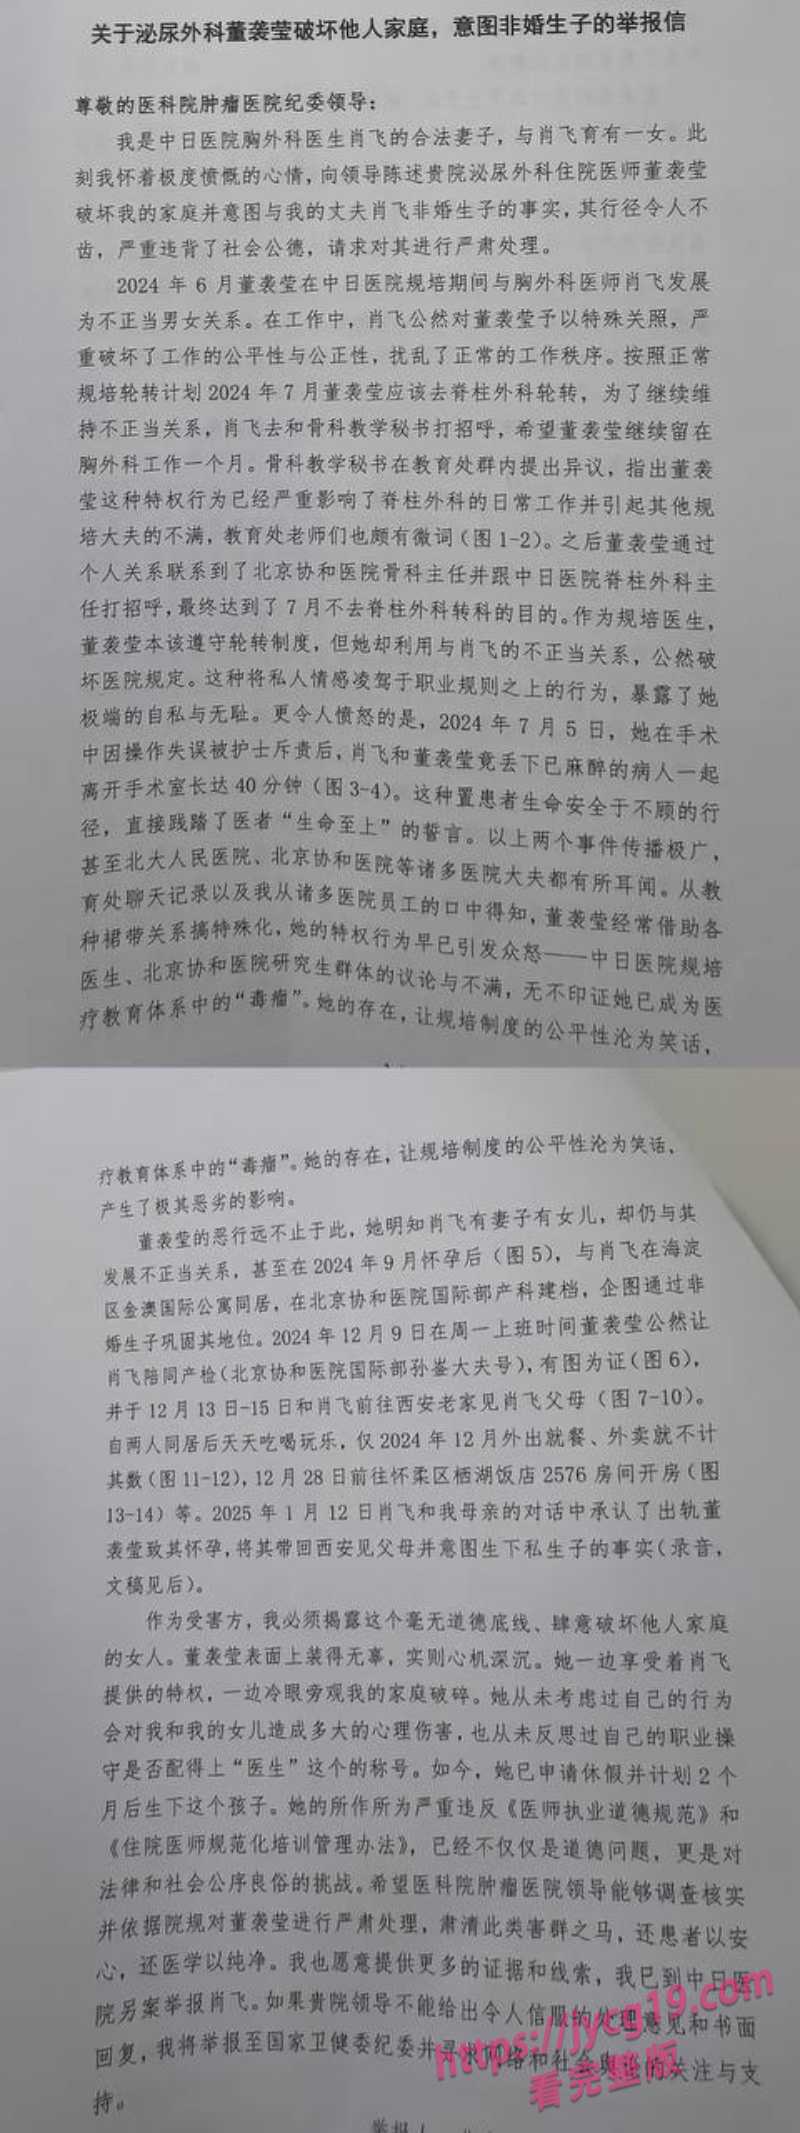 关于泌尿外科董袭莹破坏他人家庭，意图非婚生子的举报信
尊敬的医科院肿瘤医院纪委领导：
我是中日医院胸外科医生肖飞的合法妻子，与肖飞育有一女。此
刻我怀着极度愤慨的心情，向领导陈述贵院泌尿外科住院医师董袭莹
破坏我的家庭并意图与我的丈夫肖飞非婚生子的事实，其行径令人不
齿，严重违背了社会公德，请求对其进行严肃处理。
2024 年 6 月董袭莹在中日医院规培期间与胸外科医师肖飞发展
为不正当男女关系。在工作中，肖飞公然对董袭莹予以特殊关照，严
重破坏了工作的公平性与公正性，扰乱了正常的工作秩序。按照正常
规培轮转计划 2024 年 7 月董袭莹应该去脊柱外科轮转，为了继续维
持不正当关系，肖飞去和骨科教学秘书打招呼，希望董袭莹继续留在
胸外科工作一个月。骨科教学秘书在教育处群内提出异议，指出董袭
莹这种特权行为已经严重影响了脊柱外科的日常工作并引起其他规
培大夫的不满，教育处老师们也颇有微词（图 1-2）。之后董袭莹通过
个人关系联系到了北京协和医院骨科主任并跟中日医院脊柱外科主
任打招呼，最终达到了 7 月不去脊柱外科转科的目的。作为规培医生，
董袭莹本该遵守轮转制度，但她却利用与肖飞的不正当关系，公然破
坏医院规定。这种将私人情感凌驾于职业规则之上的行为，暴露了她
极端的自私与无耻。更令人愤怒的是，2024 年 7 月 5 日，她在手术
中因操作失误被护士斥责后，肖飞和董袭莹竟丢下已麻醉的病人一起
离开手术室长达 40 分钟（图 3-4）。这种置患者生命安全于不顾的行
径，直接践踏了医者“生命至上”的誓言。以上两个事件传播极广，
甚至北大人民医院、北京协和医院等诸多医院大夫都有所耳闻。从教
育处聊天记录以及我从诸多医院员工的口中得知，董袭莹经常借助各
种裙带关系搞特殊化，她的特权行为早已引发众怒——中日医院规培
医生、北京协和医院研究生群体的议论与不满，无不印证她已成为医
疗教育体系中的“毒瘤”。她的存在，让规培制度的公平性沦为笑话，
疗教育体系中的“毒瘤”。她的存在，让规培制度的公平性沦为笑话，
产生了极其恶劣的影响。
董袭莹的恶行远不止于此，她明知肖飞有妻子有女儿，却仍与其
发展不正当关系，甚至在 2024 年 9 月怀孕后（图 5），与肖飞在海淀
区金澳国际公寓同居，在北京协和医院国际部产科建档，企图通过非
婚生子巩固其地位。2024 年 12 月 9 日在周一上班时间董袭莹公然让
肖飞陪同产检（北京协和医院国际部孙崟大夫号），有图为证（图 6），
并于 12 月 13 日-15 日和肖飞前往西安老家见肖飞父母（图 7-10）。
自两人同居后天天吃喝玩乐，仅 2024 年 12 月外出就餐、外卖就不计
其数（图 11-12），12 月 28 日前往怀柔区栖湖饭店 2576 房间开房（图
13-14）等。2025 年 1 月 12 日肖飞和我母亲的对话中承认了出轨董
袭莹致其怀孕，将其带回西安见父母并意图生下私生子的事实（录音，
文稿见后）。
作为受害方，我必须揭露这个毫无道德底线、肆意破坏他人家庭
的女人。董袭莹表面上装得无辜，实则心机深沉。她一边享受着肖飞
提供的特权，一边冷眼旁观我的家庭破碎。她从未考虑过自己的行为
会对我和我的女儿造成多大的心理伤害，也从未反思过自己的职业操
守是否配得上“医生”这个的称号。如今，她已申请休假并计划 2 个
月后生下这个孩子。她的所作所为严重违反《医师执业道德规范》和
《住院医师规范化培训管理办法》，已经不仅仅是道德问题，更是对
法律和社会公序良俗的挑战。希望医科院肿瘤医院领导能够调查核实
并依据院规对董袭莹进行严肃处理，肃清此类害群之马，还患者以安
心，还医学以纯净。我也愿意提供更多的证据和线索，我已到中日医
院另案举报肖飞。如果贵院领导不能给出令人信服的处理意见和书面
回复，我将举报至国家卫健委纪委并寻求网络和社会舆论的关注与支
持。
https://jycg19.com
看完整版
举报人